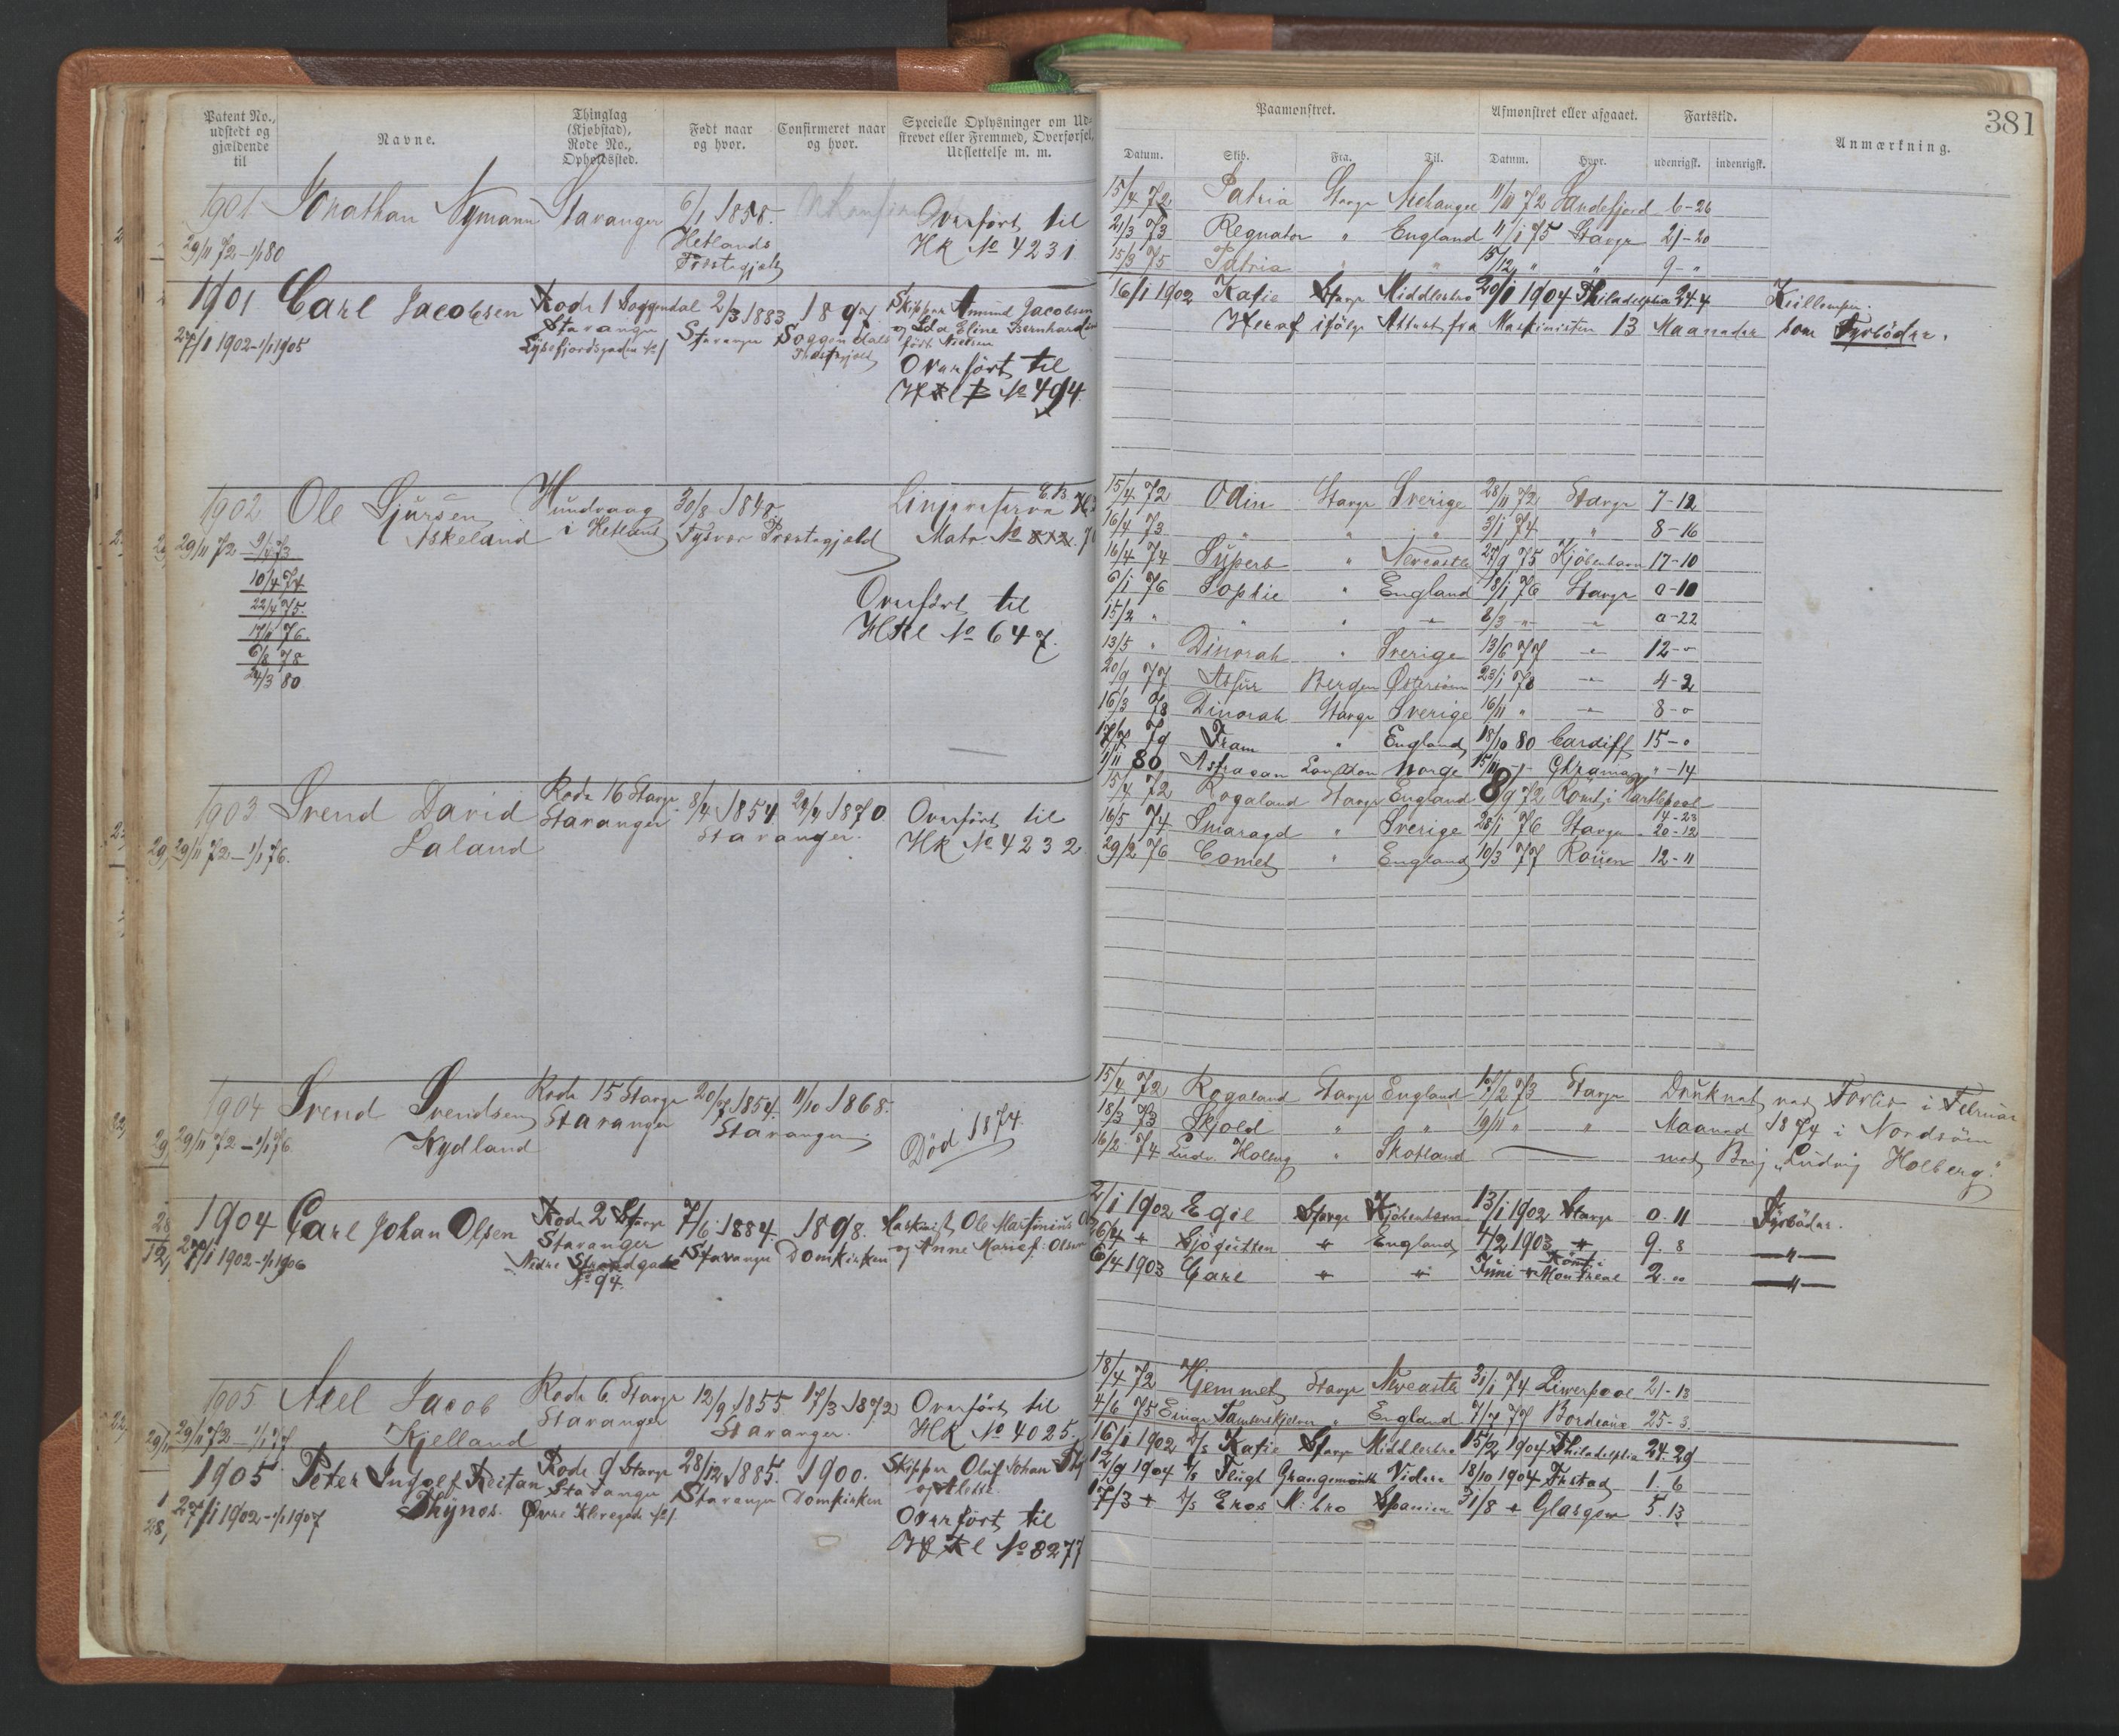 381
Patent No., udstedt og gjældende til
Navne.
Thinglag (Kjøbstad), Rode No., Opholdssted.
Født naar og hvor.
Confirmeret naar og hvor.
Specielle Oplysninger om Ud-
skrevet eller Fremmed, Overførsel,
Udslettelse m. m.
Paamønstret.
Afmønstret eller afgaaet.
Fartstid.
Anmærkning.
Datum. Skib. Fra. Til. Datum. Hvor. udenrigsk. indenrigsk.
1901 Jonathan Nymann Stavanger 6/1 1858. Overført til
29/11 72 - 1/1 80 Hetlands HK No 4231
Præstegjeld
15/4 72 Patria Stavgr 11/11 72 Sandefjord 6-26
21/3 73 Regnator " England 11/1 75 Stavgr 21-20
15/9 75 Patria " " 15/12 " " 9-"
1901 Carl Jacobsen Rode 1 Soggendal 2/3 1883 1897 Skipper Amund Jacobsen
27/1 1902-1/1 1905 Stavanger Stavanger Soggendals og Ida Eline Bernhardine
Præstegjeld født Nielsen
Overført til
No 494
16/1 1902 Katie Stavgr Middlesbro 20/1 1904 Philadelphia 24-4
Heraf ifølge Attest fra Maskinisten 13 Maaneder som Fyrbøder.
1902 Ole Sjursen Hundvaag 30/8 1848. Linjereserve
Askeland i Hetland Tysvær Præstegjeld Matr No
29/11 72 - 9/4 73
10/4 74
22/4 75
17/11 76.
6/8 78
24/3 80
Overført til
HKl No 647.
15/4 72 Odin Stavgr Sverige 28/11 72 Stavgr 7-12
16/4 73 " " " 3/1 74 " 8-16
16/4 74 Superb " Newcastle 27/9 75 Kjøbenhavn 17-10
6/1 76 Sophie " England 18/1 76 Stavgr 0-10
15/2 " " " " 6/3 " " 0-22
13/5 " Dinorah " Sverige 13/6 77 " 12-0
20/9 77 Assur Bergen Østersøen 23/1 78 " 4-2
16/3 78 Dinorah Stavgr Sverige 16/11 " " 8-0
17/7 79 Fram " England 18/10 80 Cardiff 15-0
1/11 80 London Norge 15/11 "-14
1903 Svend David Rode 16 Stavgr 8/4 1854 24/4 1870 Overført til
29/11 72 - 1/1 76. Laland Stavanger Stavanger. HK No 4232
15/4 72 Rogaland Stavgr England 8/9 72 Rømt i Hartlepool
14-23
16/5 74 Smaragd " Sverige 28/1 76 Stavgr 20-12
29/2 76 Comet " England 10/3 77 Rouen 12-11
1904 Svend Svendsen Rode 15 Stavgr 20/7 1854 11/10 1868.
29/11 72 - 1/1 76 Kydland Stavanger Stavanger. Død 1874.
15/4 72 Rogaland Stavgr England 17/2 73 Stavgr Druknet ved Forlis i Februar
18/3 73 Skjold " " 19/11 " " Maaned 1874 i Nordsøen
16/2 74 Ludv. Holberg " Skotland med Brig "Ludvig Holberg".
1904 Carl Johan Olsen Rode 2 Stavgr 7/6 1884. 1898. Maskinist Ole Martinius
27/1 1902-1/1 1906 Stavanger Stavanger Domkirken og Anne Marie f. Olsen
Nedre Strandgade
No 94.
2/1 1902 Egil Stavgr Kjøbenhavn 13/1 1902 Stavgr 0. 11 Fyrbøder.
26/4 " Sjøgutten " England 4/2 1903 " 9. 8 "
6/4 1903 Carl " " Juni " Rømt i Montreal 2. " "
1905 Axel Jacob Rode 6. Stavgr 12/9 1855 17/3 1872 Overført til
29/11 72 - 1/1 77 Kjelland Stavanger Stavanger. HK No 4025.
18/4 72 Hjemmet Stavgr Newcastle 31/1 74 Liverpool 21-13
4/6 75 Einar Tamberskjelver " England 7/7 77 Bordeaux 25-3
1905 Peter Ingolf Reitan Rode 9 Stavgr 28/12 1885. 1900. Skipper Oluf Johan
27/1 1902-1/1 1907 Stavanger Stavanger Domkirken
Øvre Klevegade
Overført til
No 8277
16/1 1902 D/s Katie Stavgr Middlesbro 15/2 1904 Philadelphia 24. 29
12/9 1904 D/s Flugt Grangemouth 18/10 1904 1. 6
17/3 " D/s Eros M:bro Spanien 31/8 " Glasgow 5. 13